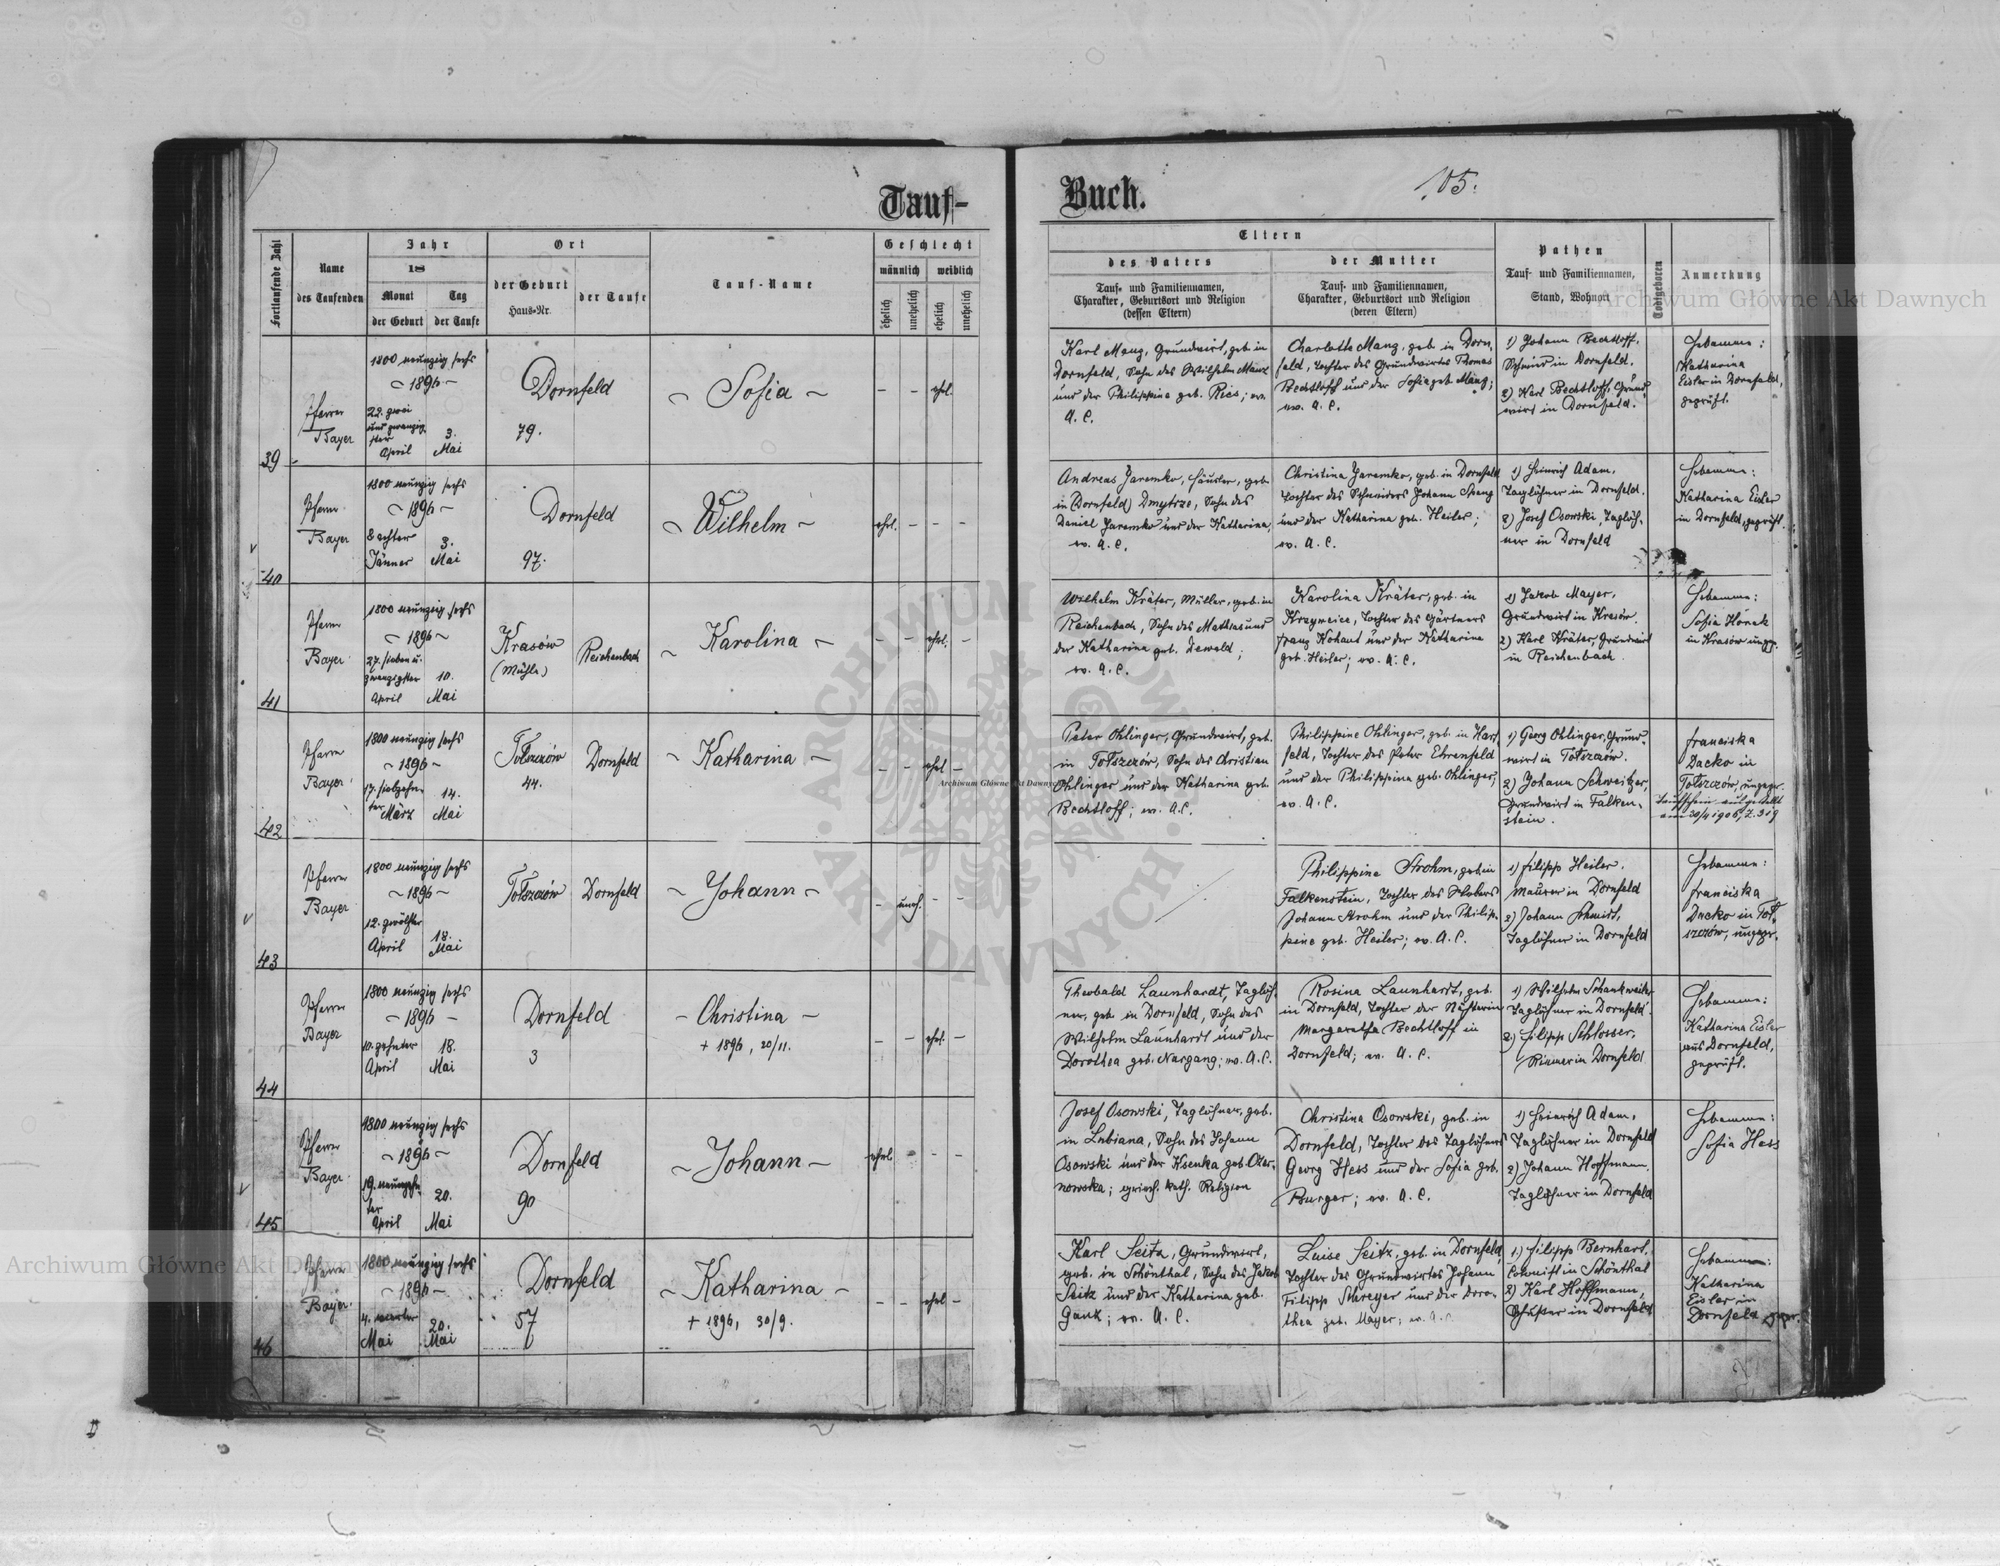 Tauf-
Buch.
105.
Fortlaufende Zahl
Name
des Taufenden
Jahr
18
Monat
der Geburt
Tag
der Taufe
Ort
der Geburt
Haus-Nr.
der Taufe
Tauf-Name
Geschlecht
männlich
weiblich
ehelich
unehelich
ehelich
unehelich
Eltern
des Vaters
Tauf- und Familiennamen,
Charakter, Geburtsort und Religion
(dessen Eltern)
der Mutter
Tauf- und Familiennamen,
Charakter, Geburtsort und Religion
(deren Eltern)
Pathen
Tauf- und Familiennamen,
Stand, Wohnort
Todtgeboren
Anmerkung
39
Pfarrer
Bayer
1800 neunzig sechs
~ 1896 ~
22. zwei
und zwanzig-
ster
April
3.
Mai
Dornfeld
79.
~ Sofia ~
– – ehel.
Karl Manz, Grundwirt, geb. in
Dornfeld, Sohn des Wilhelm Manz
und der Philippina geb. Ries; ev.
A. C.
Charlotte Manz, geb. in Dorn-
feld, Tochter des Grundwirtes Thomas
Bechtloff und der Sofia geb. Manz;
ev. A. C.
1) Johann Bechtloff,
Schmied in Dornfeld.
2) Karl Bechtloff, Grund-
wirt in Dornfeld.
Hebamme:
Katharina
Eisler in Dornfeld,
geprüft.
40
Pfarrer
Bayer
1800 neunzig sechs
~ 1896 ~
8 achter
Jänner
3.
Mai
Dornfeld
97.
~ Wilhelm ~
ehel. – – –
Andreas Jaremko, Häusler, geb.
in (Dornfeld) Dmytrze, Sohn des
Daniel Jaremko und der Katharina,
ev. A. C.
Christina Jaremko, geb. in Dornfeld
Tochter des Schneiders Johann
und der Katharina geb. Heiler;
ev. A. C.
1) Heinrich Adam,
Taglöhner in Dornfeld.
2) Josef Osowski, Taglöh-
ner in Dornfeld
Hebamme:
Katharina Eisler
in Dornfeld, geprüft.
41
Pfarrer
Bayer
1800 neunzig sechs
~ 1896 ~
27. sieben u.
zwanzigster
April
10.
Mai
Krasów
(Mühle)
Reichenbach
~ Karolina ~
– – ehel. –
Wilhelm Kräter, Müller, geb. in
Reichenbach, Sohn des Mathias und
der Katharina geb. Dewald;
ev. A. C.
Karolina Kräter, geb. in
Krzywcice, Tochter des Gärtners
Franz Kohaut und der Katharina
geb. Heiler; ev. A. C.
1) Jakob Mayer,
Grundwirt in Krasów.
2) Karl Kräter, Grundwirt
in Reichenbach.
Hebamme:
Sofia Honek
in Krasów ungpr.
42
Pfarrer
Bayer
1800 neunzig sechs
~ 1896 ~
17. siebzehn-
ter März
14.
Mai
Tołszczów
44.
Dornfeld
~ Katharina ~
– – ehel –
Peter Ohlinger, Grundwirt, geb.
in Tołszczów, Sohn des Christian
Ohlinger und der Katharina geb.
Bechtloff; ev. A. C.
Philippine Ohlinger, geb. in Hart-
feld, Tochter des Peter Ehrenfeld
und der Philippina geb. Ohlinger;
ev. A. C.
1) Georg Ohlinger, Grund-
wirt in Tołszczów.
2) Johann Schweitzer,
Grundwirt in Falken-
stein.
Franciska
Dacko in
Tołszczów, ungepr.
Taufschein ausgestellt
am 30/4 1906, Z. 319
43
Pfarrer
Bayer
1800 neunzig sechs
~ 1896 ~
12. zwölfter
April
18.
Mai
Tołszczów
Dornfeld
~ Johann ~
– uneh. – –
Philippine Strohm, geb. in
Falkenstein, Tochter des
Johann Strohm und der Philip-
pine geb. Heiler; ev. A. C.
1) Filipp Heiler,
Maurer in Dornfeld
2) Johann Schmidt,
Taglöhner in Dornfeld
Hebamme:
Franciska
Dacko in Toł-
szczów, ungepr.
44
Pfarrer
Bayer
1800 neunzig sechs
~ 1896 ~
10. zehnter
April
18.
Mai
Dornfeld
3
~ Christina ~
+ 1896, 20/11.
– – ehel. –
Theobald Launhardt, Taglöh-
ner, geb. in Dornfeld, Sohn des
Wilhelm Launhardt und der
Dorothea geb. Nargang; ev. A. C.
Rosina Launhardt, geb.
in Dornfeld, Tochter der Näherin
Margaretha Bechtloff in
Dornfeld; ev. A. C.
1) Wilhelm Schankweiler
Taglöhner in Dornfeld.
2) Filipp Schlosser,
Riemer in Dornfeld
Hebamme:
Katharina Eisler
aus Dornfeld,
geprüft.
45
Pfarrer
Bayer
1800 neunzig sechs
~ 1896 ~
19. neunzehn-
ter
April
20.
Mai
Dornfeld
90
~ Johann ~
ehel – – –
Josef Osowski, Taglöhner, geb.
in Lubiana, Sohn des Johann
Osowski und der Ksenka geb.
nowska; griech. kath. Religion
Christina Osowski, geb. in
Dornfeld, Tochter des Taglöhners
Georg Hess und der Sofia geb.
Burger; ev. A. C.
1) Heinrich Adam,
Taglöhner in Dornfeld
2) Johann Hoffmann,
Taglöhner in Dornfeld
Hebamme:
Sofia Hess
46
Pfarrer
Bayer
1800 neunzig sechs
~ 1896 ~
4. vierter
Mai
20.
Mai
Dornfeld
57
~ Katharina ~
+ 1896, 30/9.
– – ehel –
Karl Seitz, Grundwirt,
geb. in Schönthal, Sohn des Jakob
Seitz und der Katharina geb.
Gauk; ev. A. C.
Luise Seitz, geb. in Dornfeld,
Tochter des Grundwirtes Johann
Filipp Schreyer und der Doro-
thea geb. Mayer; ev. A. C.
1.) Filipp Bernhart,
Colonist in Schönthal
2) Karl Hoffmann,
Schuster in Dornfeld
Hebamme:
Katharina
Eisler in
Dornfeld gepr.
Archiwum Główne Akt Dawnych
Archiwum Główne Akt Dawnych
Archiwum Główne Akt Dawnych
ARCHIWUM GŁÓWNE AKT DAWNYCH